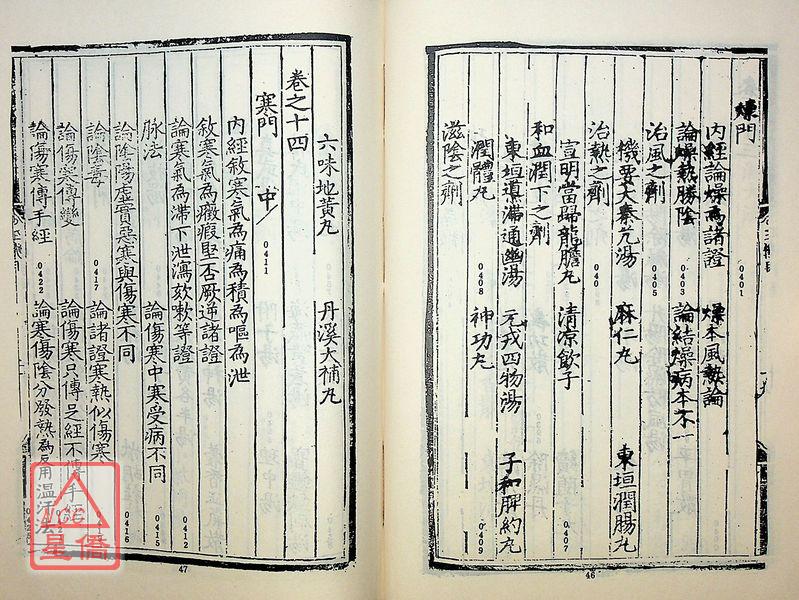 燥門
0401
內經論燥為諸證 燥本風熱論
論燥熱勝陰 0403 論結燥病本不一
治風之劑 0405
機要大秦艽湯 麻仁丸 東垣潤腸丸
治熱之劑 040
宣明當歸龍膽丸 清涼飲子
0407
和血潤下之劑
東垣導滯通幽湯 元戎四物湯 子和脾約丸
潤體丸 0408 神功丸 0409
滋陰之劑
46
六味地黃丸 丹溪大補丸
卷之十四
寒門 中 0411
內經敘寒氣為痛為積為嘔為泄
敘寒氣為癥瘕堅否厥逆諸證
0412
論寒氣為滯下泄瀉欬嗽等證
脉法 論傷寒中寒受病不同
0415
論陰陽虛實惡寒與傷寒不同
0416
論陰毒 0417 論諸證寒熱似傷寒
論傷寒傳變 論傷寒只傳足經不傳手經
論傷寒傳手經 0422 論寒傷陰分發熱為
用溫
法
47
星僑